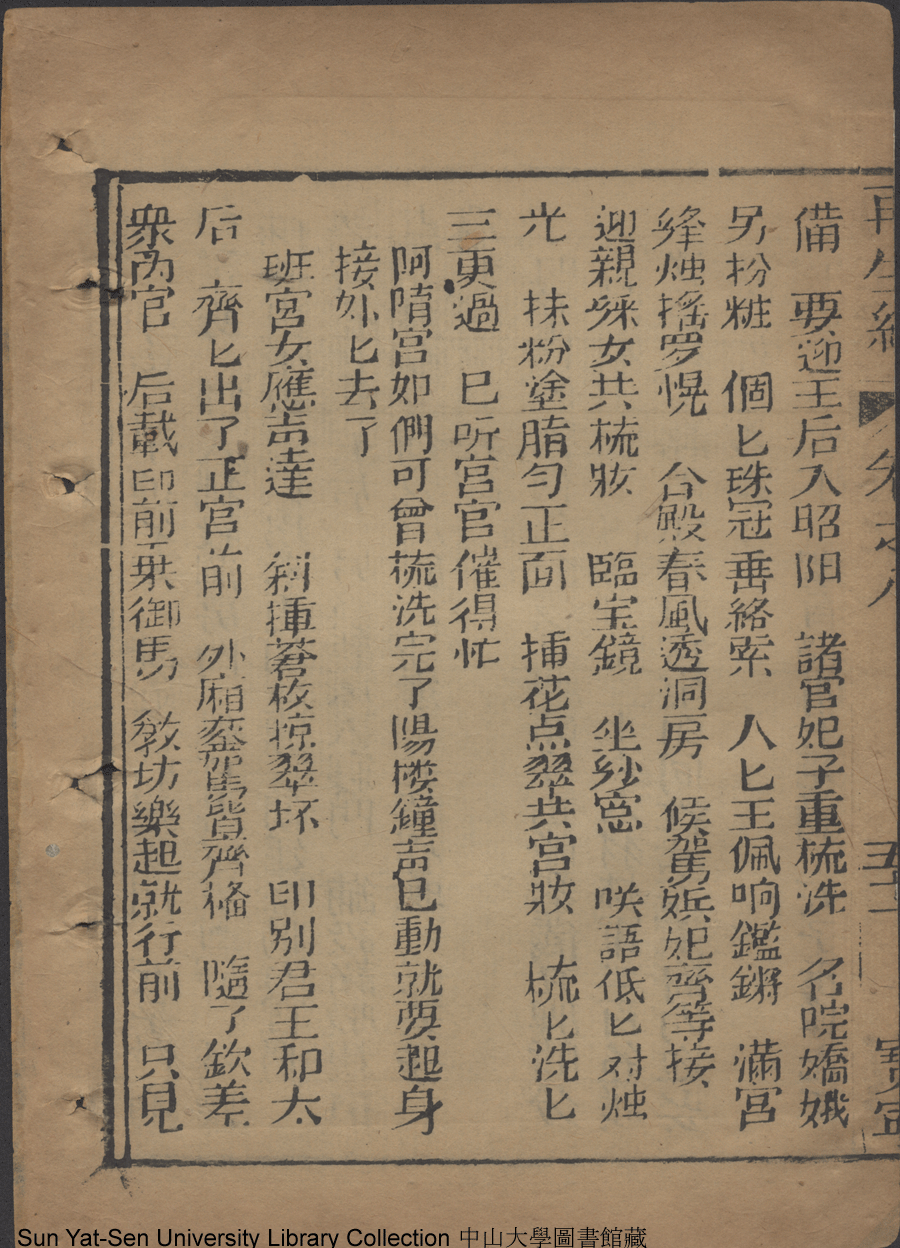 再生緣 卷之八 五十一 寶寧
備 要迎王后入昭阳 諸官妃子重梳洗 名院嬌娥
另扮粧 個匕珠冠垂絡索 人匕王佩响鑑鏘 滿宮
絳烛摇罗幌 合殿春風透洞房 候駕嫔妃齊等接
迎親婇女共梳妝 臨宝鏡 坐紗窓 咲語低匕对烛
光 抹粉塗脂匀正面 揷花点翠共宫妝 梳匕洗匕
三更過 巳听宫官催得忙
阿隋宫如們可曾梳洗完了陽楼鐘声已動就要起身
接外匕去了
班宫女應声達 斜揷蒼枚掠翠坏 印别君王和太
后 齊匕出了正宫前 外厢鑾駕皆齊偹 隨了欽差
衆内官 后載印前乗御馬 敎坊樂起就行前 只見
Sun Yat-Sen University Library Collection 中山大學圖書館藏